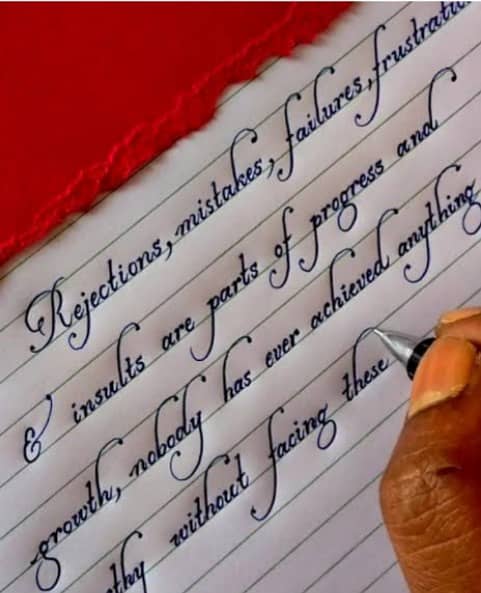 Rejections, mistakes, failures, frustrati
& insults are parts of progress and
growth, nobody has ever achieved anything
thy without facing these